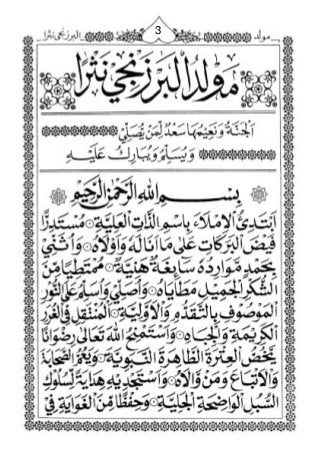 مولد
3
البرزنجي نثرا
مَوْلِدُ الْبَرْزَنْجِيْ نَثْرًا
اَلْجَنَّةُ وَنَعِيْمُهَا سَعْدٌ لِمَنْ يُصَلِّيْ
وَيُسَلِّمُ وَيُبَارِكُ عَلَيْهِ
بِسْمِ اللهِ الرَّحْمٰنِ الرَّحِيْمِ
اَبْتَدِئُ الْاِمْلَاءَ بِاسْمِ الذَّاتِ الْعَلِيَّةِ۞ مُسْتَدِرًّا
فَيْضَ الْبَرَكَاتِ عَلٰى مَا اَنَالَهُ وَاَوْلَاهُ۞ وَاُثَنِّيْ
بِحَمْدٍ مَوَارِدُهُ سَآئِغَةٌ هَنِيَّةٌ۞ مُمْتَطِيًا مِنَ
الشُّكْرِ الْجَمِيْلِ مَطَايَاهُ۞ وَاُصَلِّيْ وَاُسَلِّمُ عَلَى النُّوْرِ
الْمَوْصُوْفِ بِالتَّقَدُّمِ وَالْاَوَّلِيَّةِ۞ اَلْمُنْتَقِلِ فِى الْغُرَرِ
الْكَرِيْمَةِ وَالْجِبَاهِ۞ وَاَسْتَمْنِحُ اللهَ تَعَالٰى رِضْوَانًا
يَخُصُّ الْعِتْرَةَ الطَّاهِرَةَ النَّبَوِيَّةَ۞ وَيَعُمُّ الصَّحَابَةَ
وَالْاَتْبَاعَ وَمَنْ وَّالَاهُ۞ وَاَسْتَجْدِيْهِ هِدَايَةً لِسُلُوْكِ
السُّبُلِ الْوَاضِحَةِ الْجَلِيَّةِ۞ وَحِفْظًا مِنَ الْغَوَايَةِ فِيْ